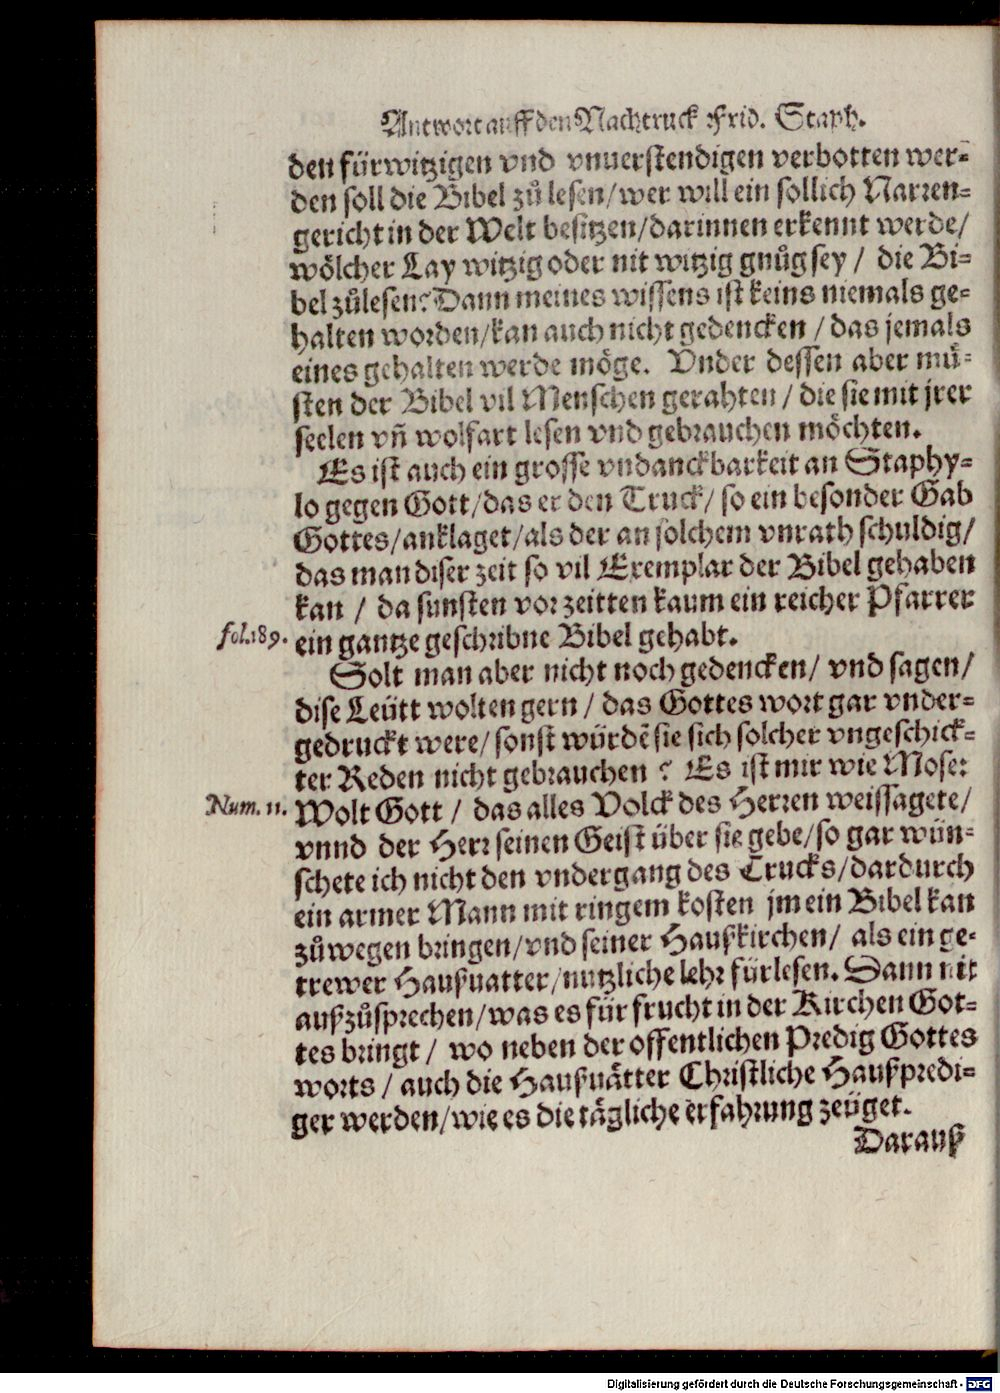 Antwort auff den Nachtruck Frid. Staph.
den fürwitzigen vnd vnuerstendigen verbotten wer-
den soll die Bibel zů lesen/wer will ein sollich Narren-
gericht in der Welt besitzen/darinnen erkennt werde/
wölcher Lay witzig oder nit witzig gnůg sey / die Bi-
bel zůlesen? Dann meines wissens ist keins niemals ge-
halten worden/kan auch nicht gedencken / das jemals
eines gehalten werde möge. Vnder dessen aber mů-
sten der Bibel vil Menschen gerahten / die sie mit jrer
seelen vñ wolfart lesen vnd gebrauchen möchten.
Es ist auch ein grosse vndanckbarkeit an Staphy-
lo gegen Gott/das er den Truck/ so ein besonder Gab
Gottes/anklaget/als der an solchem vnrath schuldig/
das man diser zeit so vil Exemplar der Bibel gehaben
kan / da sunsten vor zeitten kaum ein reicher Pfarrer
fol.189. ein gantze geschribne Bibel gehabt.
Solt man aber nicht noch gedencken/ vnd sagen/
dise Leütt wolten gern / das Gottes wort gar vnder-
gedruckt were/ sonst würdē sie sich solcher vngeschick-
ter Reden nicht gebrauchen ? Es ist mir wie Mose:
Num. 11. Wolt Gott / das alles Volck des Herren weissagete/
vnnd der Herr seinen Geist über sie gebe/so gar wün-
schete ich nicht den vndergang des Trucks/dardurch
ein armer Mann mit ringem kosten jm ein Bibel kan
zůwegen bringen/vnd seiner Haußkirchen/ als ein ge-
trewer Haußuatter/nutzliche lehr fürlesen. Dann nit
außzůsprechen/was es für frucht in der Kirchen Got-
tes bringt / wo neben der offentlichen Predig Gottes
worts / auch die Haußuätter Christliche Haußpredi-
ger werden/wie es die tägliche erfahrung zeüget.
Darauß
Digitalisierung gefördert durch die Deutsche Forschungsgemeinschaft - DFG